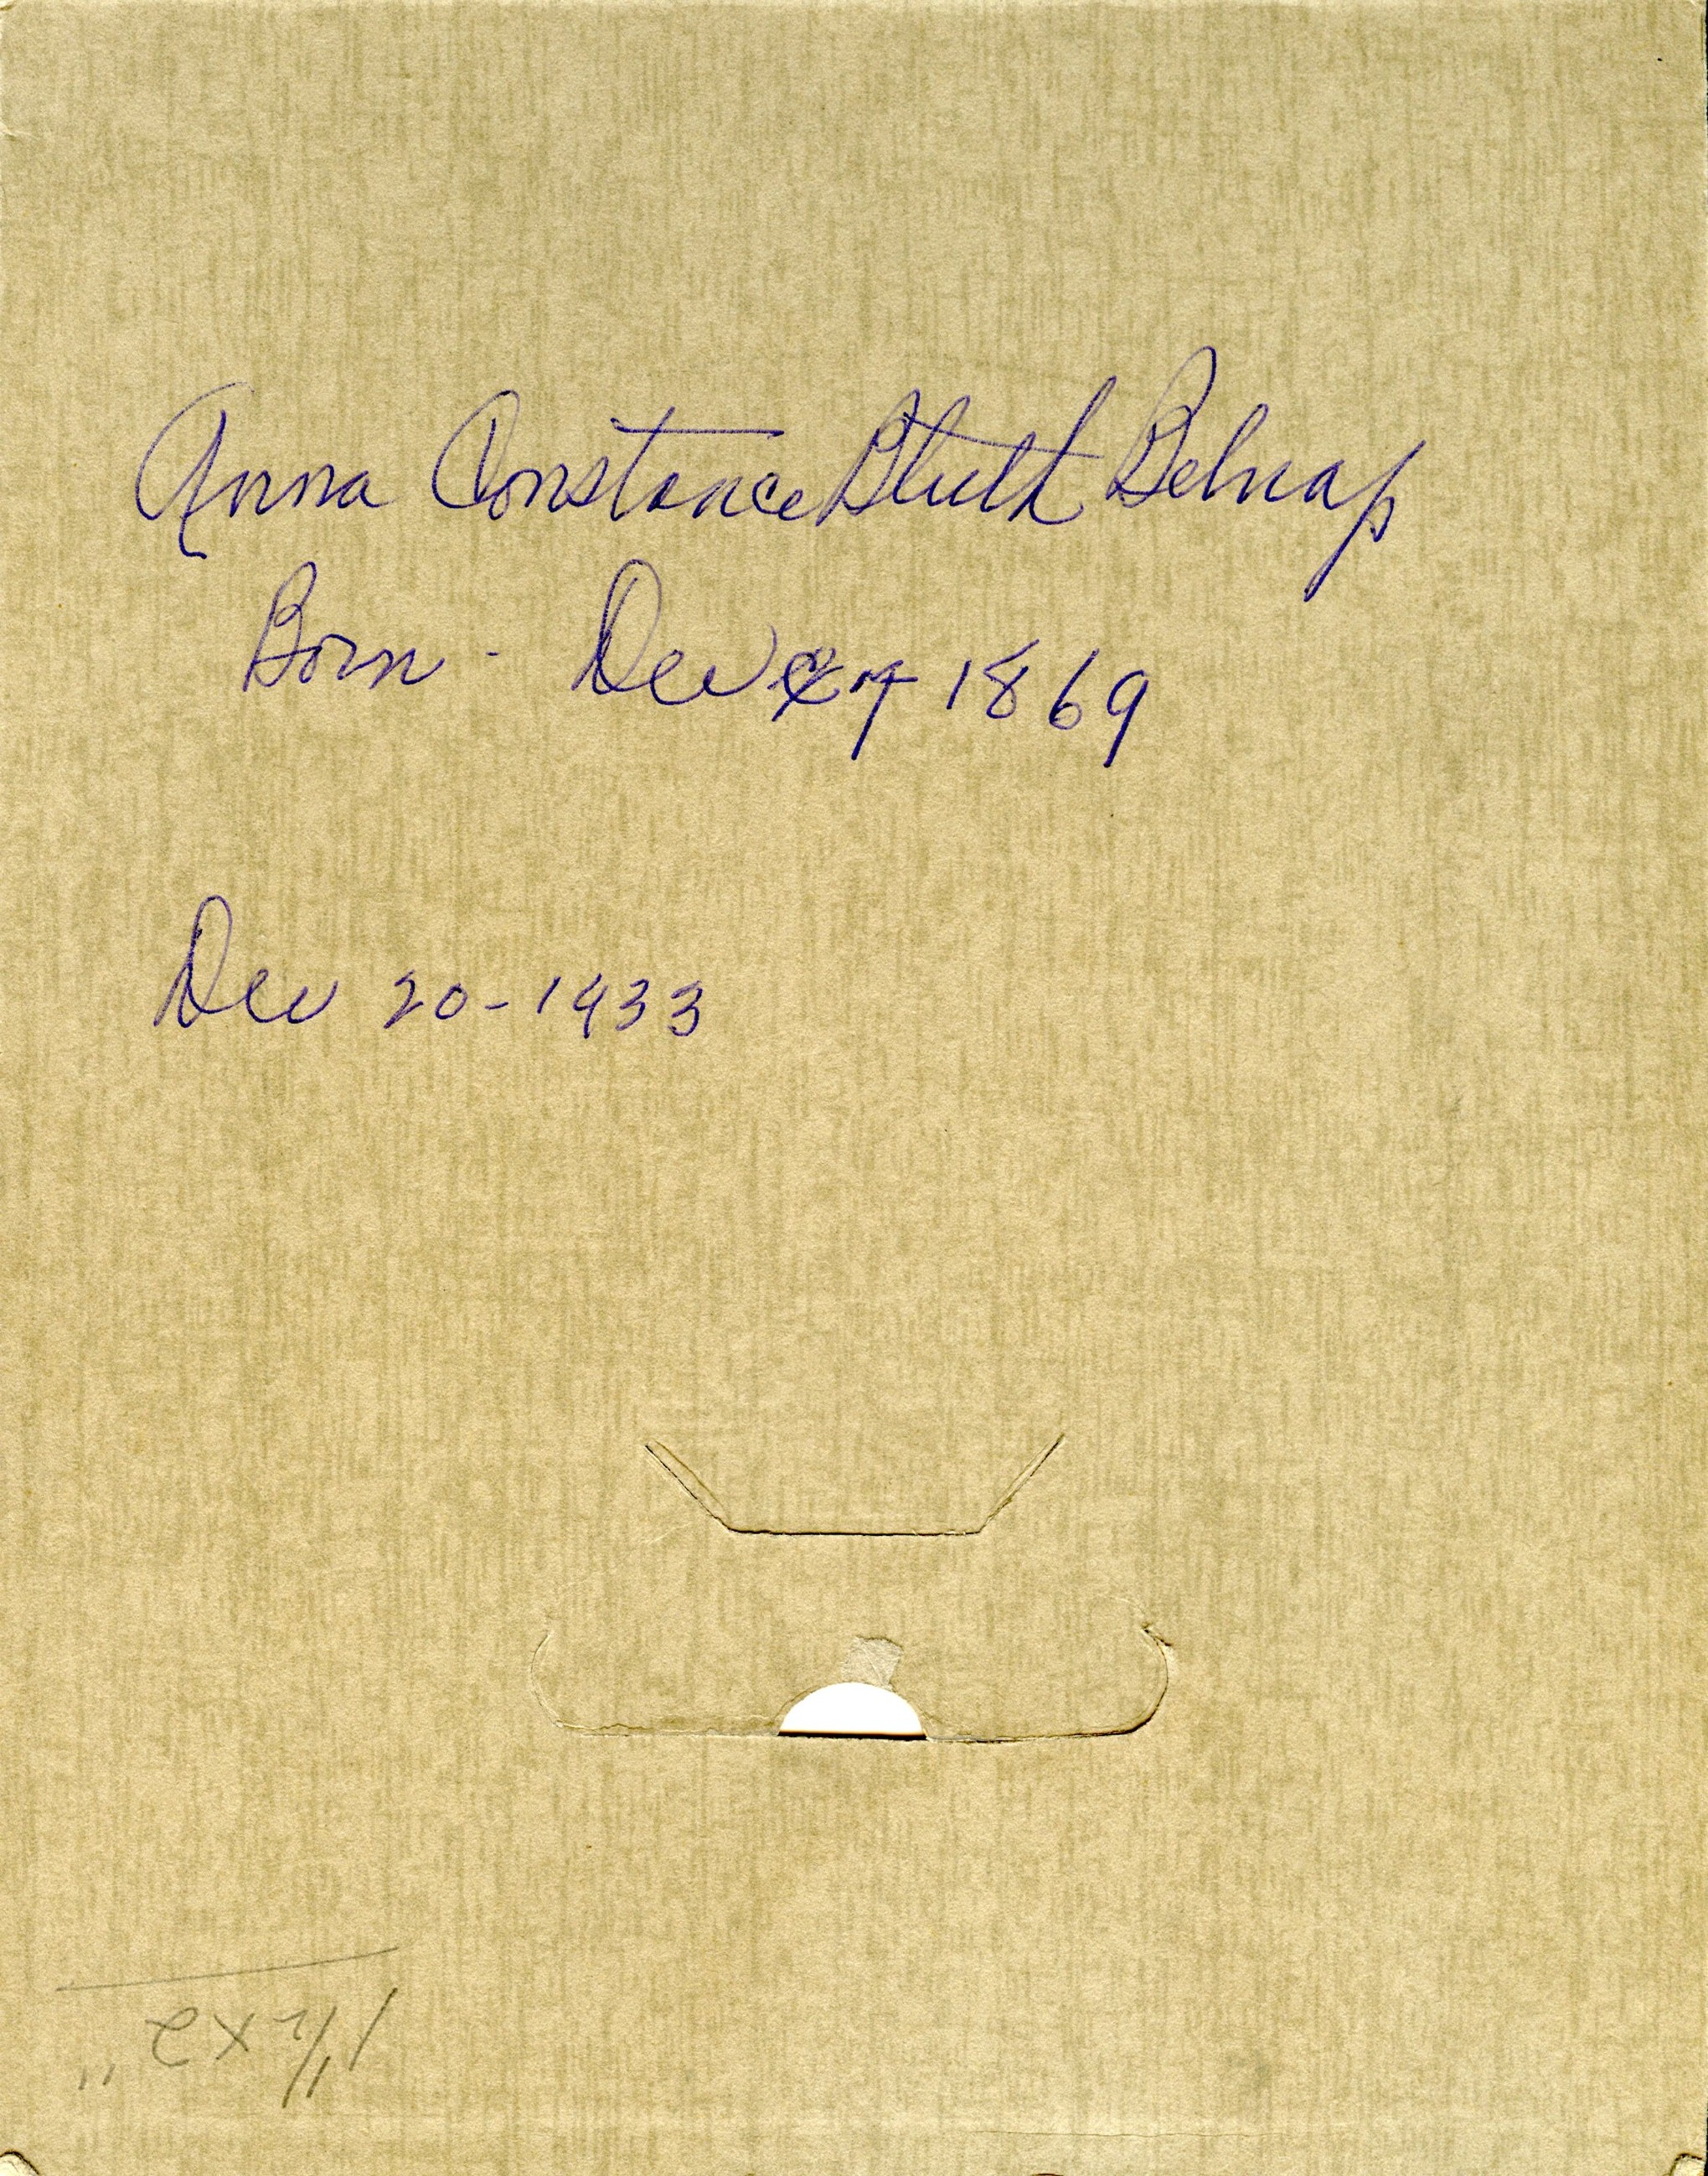 Anna Constance Bluth Belnap
Born - Dec 27 1869
Dec 20 - 1933
1 1/2 x 2"